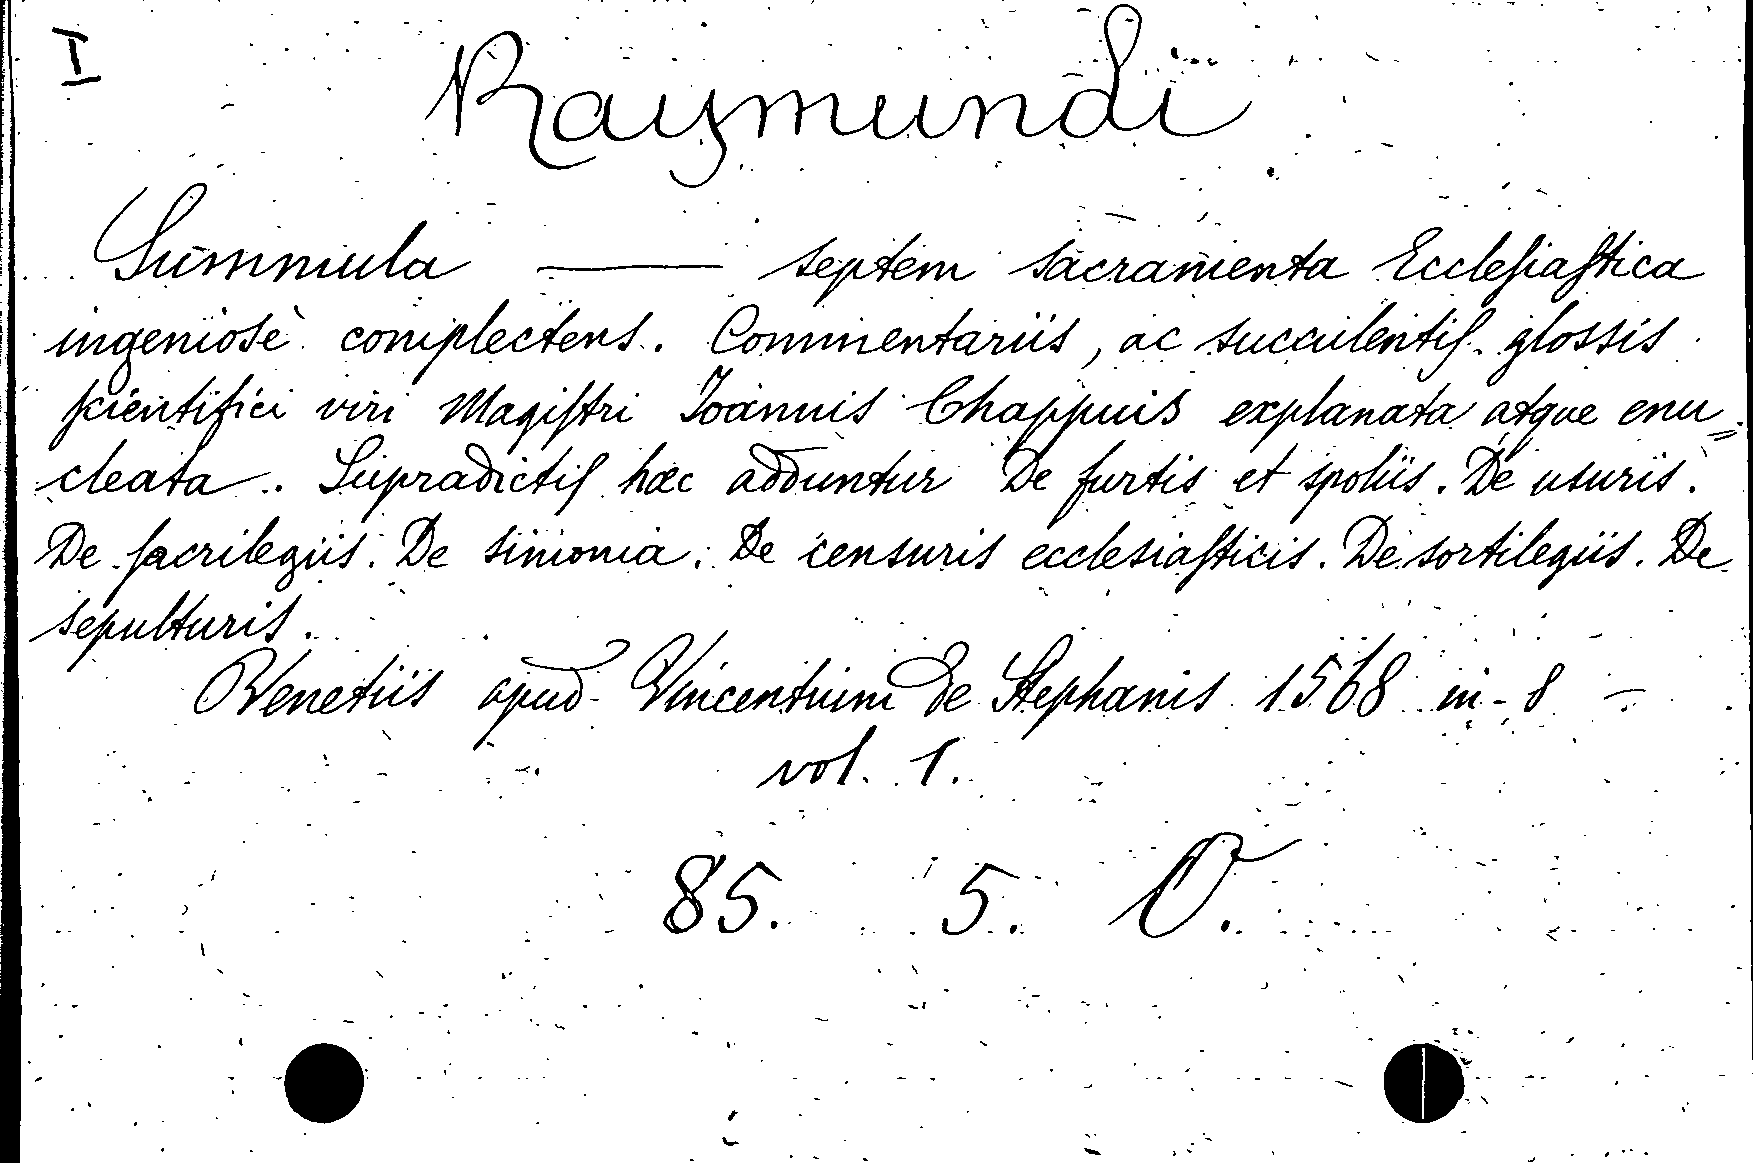 I
Raymundi
Summula —— septem sacramenta Eccleſiaſtica
ingeniosè complectens. Commentariis, ac succulentiſ glossis
ſcientifici viri Magiſtri Ioannis Chappuis explanata atque enu=
cleata. Supradictiſ hæc adduntur De furtis et spoliis. De usuris.
De ſacrilegiis. De simonia. De censuris ecclesiaſticis. De sortilegiis. De
sepulturis.
Venetiis apud Vincentium de Stephanis 1568 in-8 –
vol. 1.
85. 5. O.